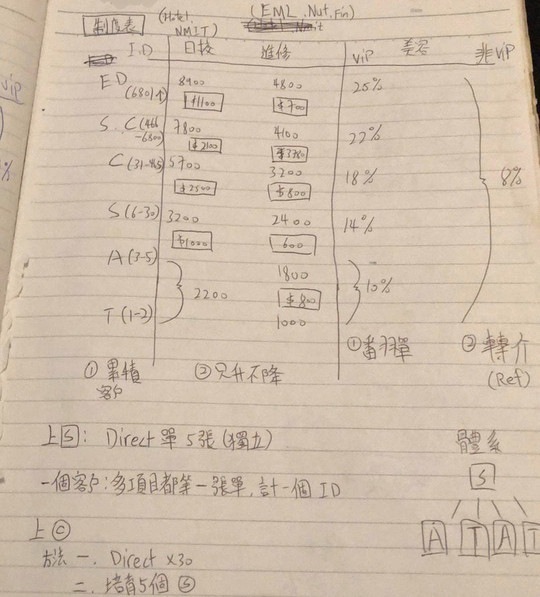 制度表 (Hotel, NMIT) (EML, Nut, Fin)
I.D 日校 進修 ViP 美容 非ViP
ED (6801↑) 8900 4800 25%
$1100 $700
S.C (466-6800) 7800 4100 22%
$2100
C (31-465) 5700 3200 18% 8%
$2500 $800
S (6-30) 3200 2400 14%
$1000 600
A (3-5) 1800
2200 $800 10%
T (1-2) 1000
① 累積客戶 ② 只升不降 ① 單 ② 轉介 (Ref)
上S: Direct 單 5張 (獨立) 體系
一個客户:多項目都等一張單,計一個 ID S
A T A T
上 C
方法 一. Direct x30
二. 培育5個 S